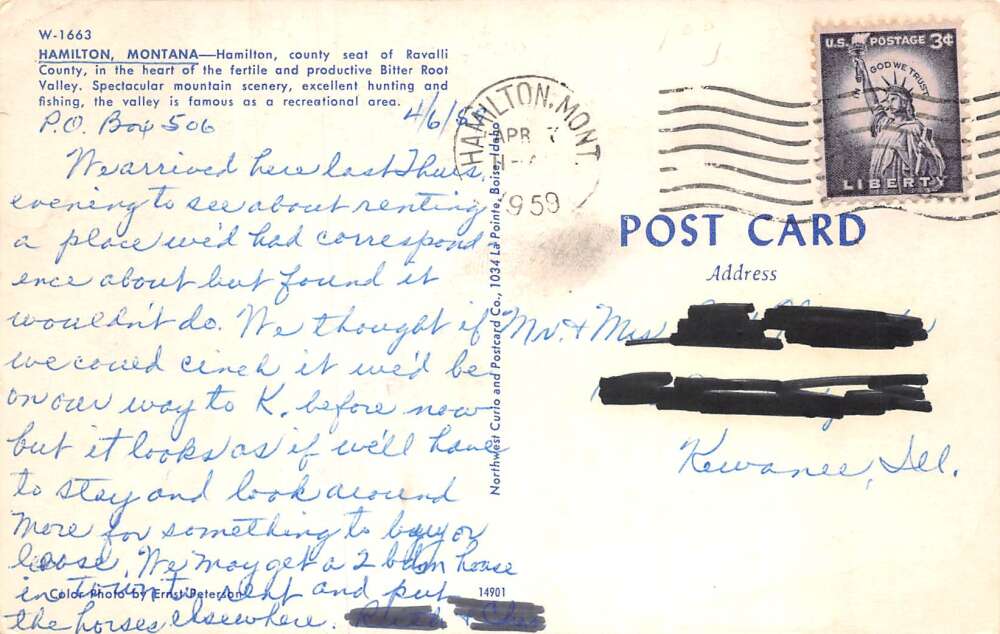 W-1663
HAMILTON, MONTANA—Hamilton, county seat of Ravalli
County, in the heart of the fertile and productive Bitter Root
Valley. Spectacular mountain scenery, excellent hunting and
fishing, the valley is famous as a recreational area.
P.O. Box 506 4/6/5
We arrived here last Thurs.
evening to see about renting
a place we'd had correspond
ence about but found it
wouldn't do. We thought if
we could cinch it we'd be
on our way to K. before now
but it looks as if we'll have
to stay and look around
more for something to buy or
lease. We may get a 2 bdrm house
in town to rent and put
the horses elsewhere.
Color Photo by Ernst Peterson
14901
Northwest Curio and Postcard Co., 1034 La Pointe, Boise, Idaho
HAMILTON, MONT.
APR 7
1959
U.S. POSTAGE 3¢
IN GOD WE TRUST
LIBERTY
POST CARD
Address
Mr. & Mrs
Kewanee, Ill.